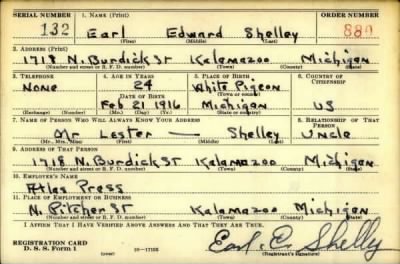 SERIAL NUMBER 1. NAME (Print) ORDER NUMBER
132 Earl Edward Shelley 880
(First) (Middle) (Last)
2. ADDRESS (Print)
1718 N. Burdick St Kalamazoo Michigan
(Number and street or R. F. D. number) (Town) (County) (State)
3. TELEPHONE 4. AGE IN YEARS 5. PLACE OF BIRTH 6. COUNTRY OF CITIZENSHIP
None 24 White Pigeon
DATE OF BIRTH (Town or county)
Feb 21 1916 Michigan US
(Exchange) (Number) (Mo.) (Day) (Yr.) (State or country)
7. NAME OF PERSON WHO WILL ALWAYS KNOW YOUR ADDRESS 8. RELATIONSHIP OF THAT PERSON
Mr Lester — Shelley Uncle
(Mr., Mrs., Miss) (First) (Middle) (Last)
9. ADDRESS OF THAT PERSON
1718 N. Burdick St Kalamazoo Michigan
(Number and street or R. F. D. number) (Town) (County) (State)
10. EMPLOYER'S NAME
Atlas Press
11. PLACE OF EMPLOYMENT OR BUSINESS
N. Pitcher St Kalamazoo Michigan
(Number and street or R. F. D. number) (Town) (County) (State)
I AFFIRM THAT I HAVE VERIFIED ABOVE ANSWERS AND THAT THEY ARE TRUE.
REGISTRATION CARD
D. S. S. Form 1 Earl. E. Shelly
(Registrant's signature)